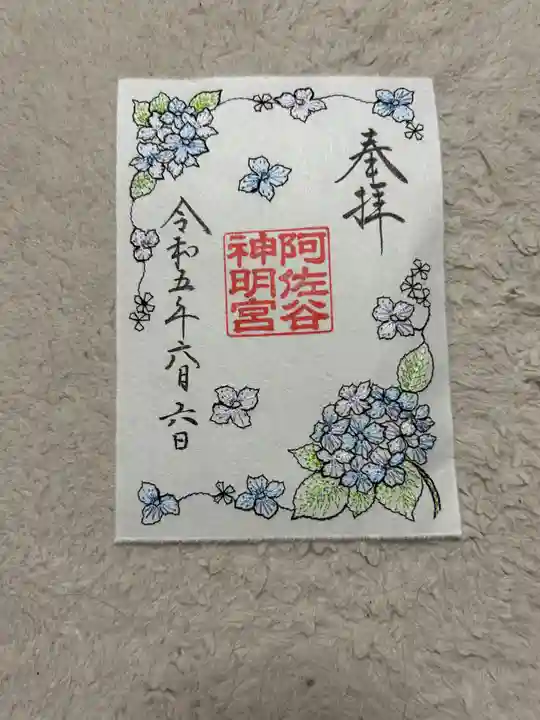 奉拝
阿佐谷
神明宮
令和五年六月六日